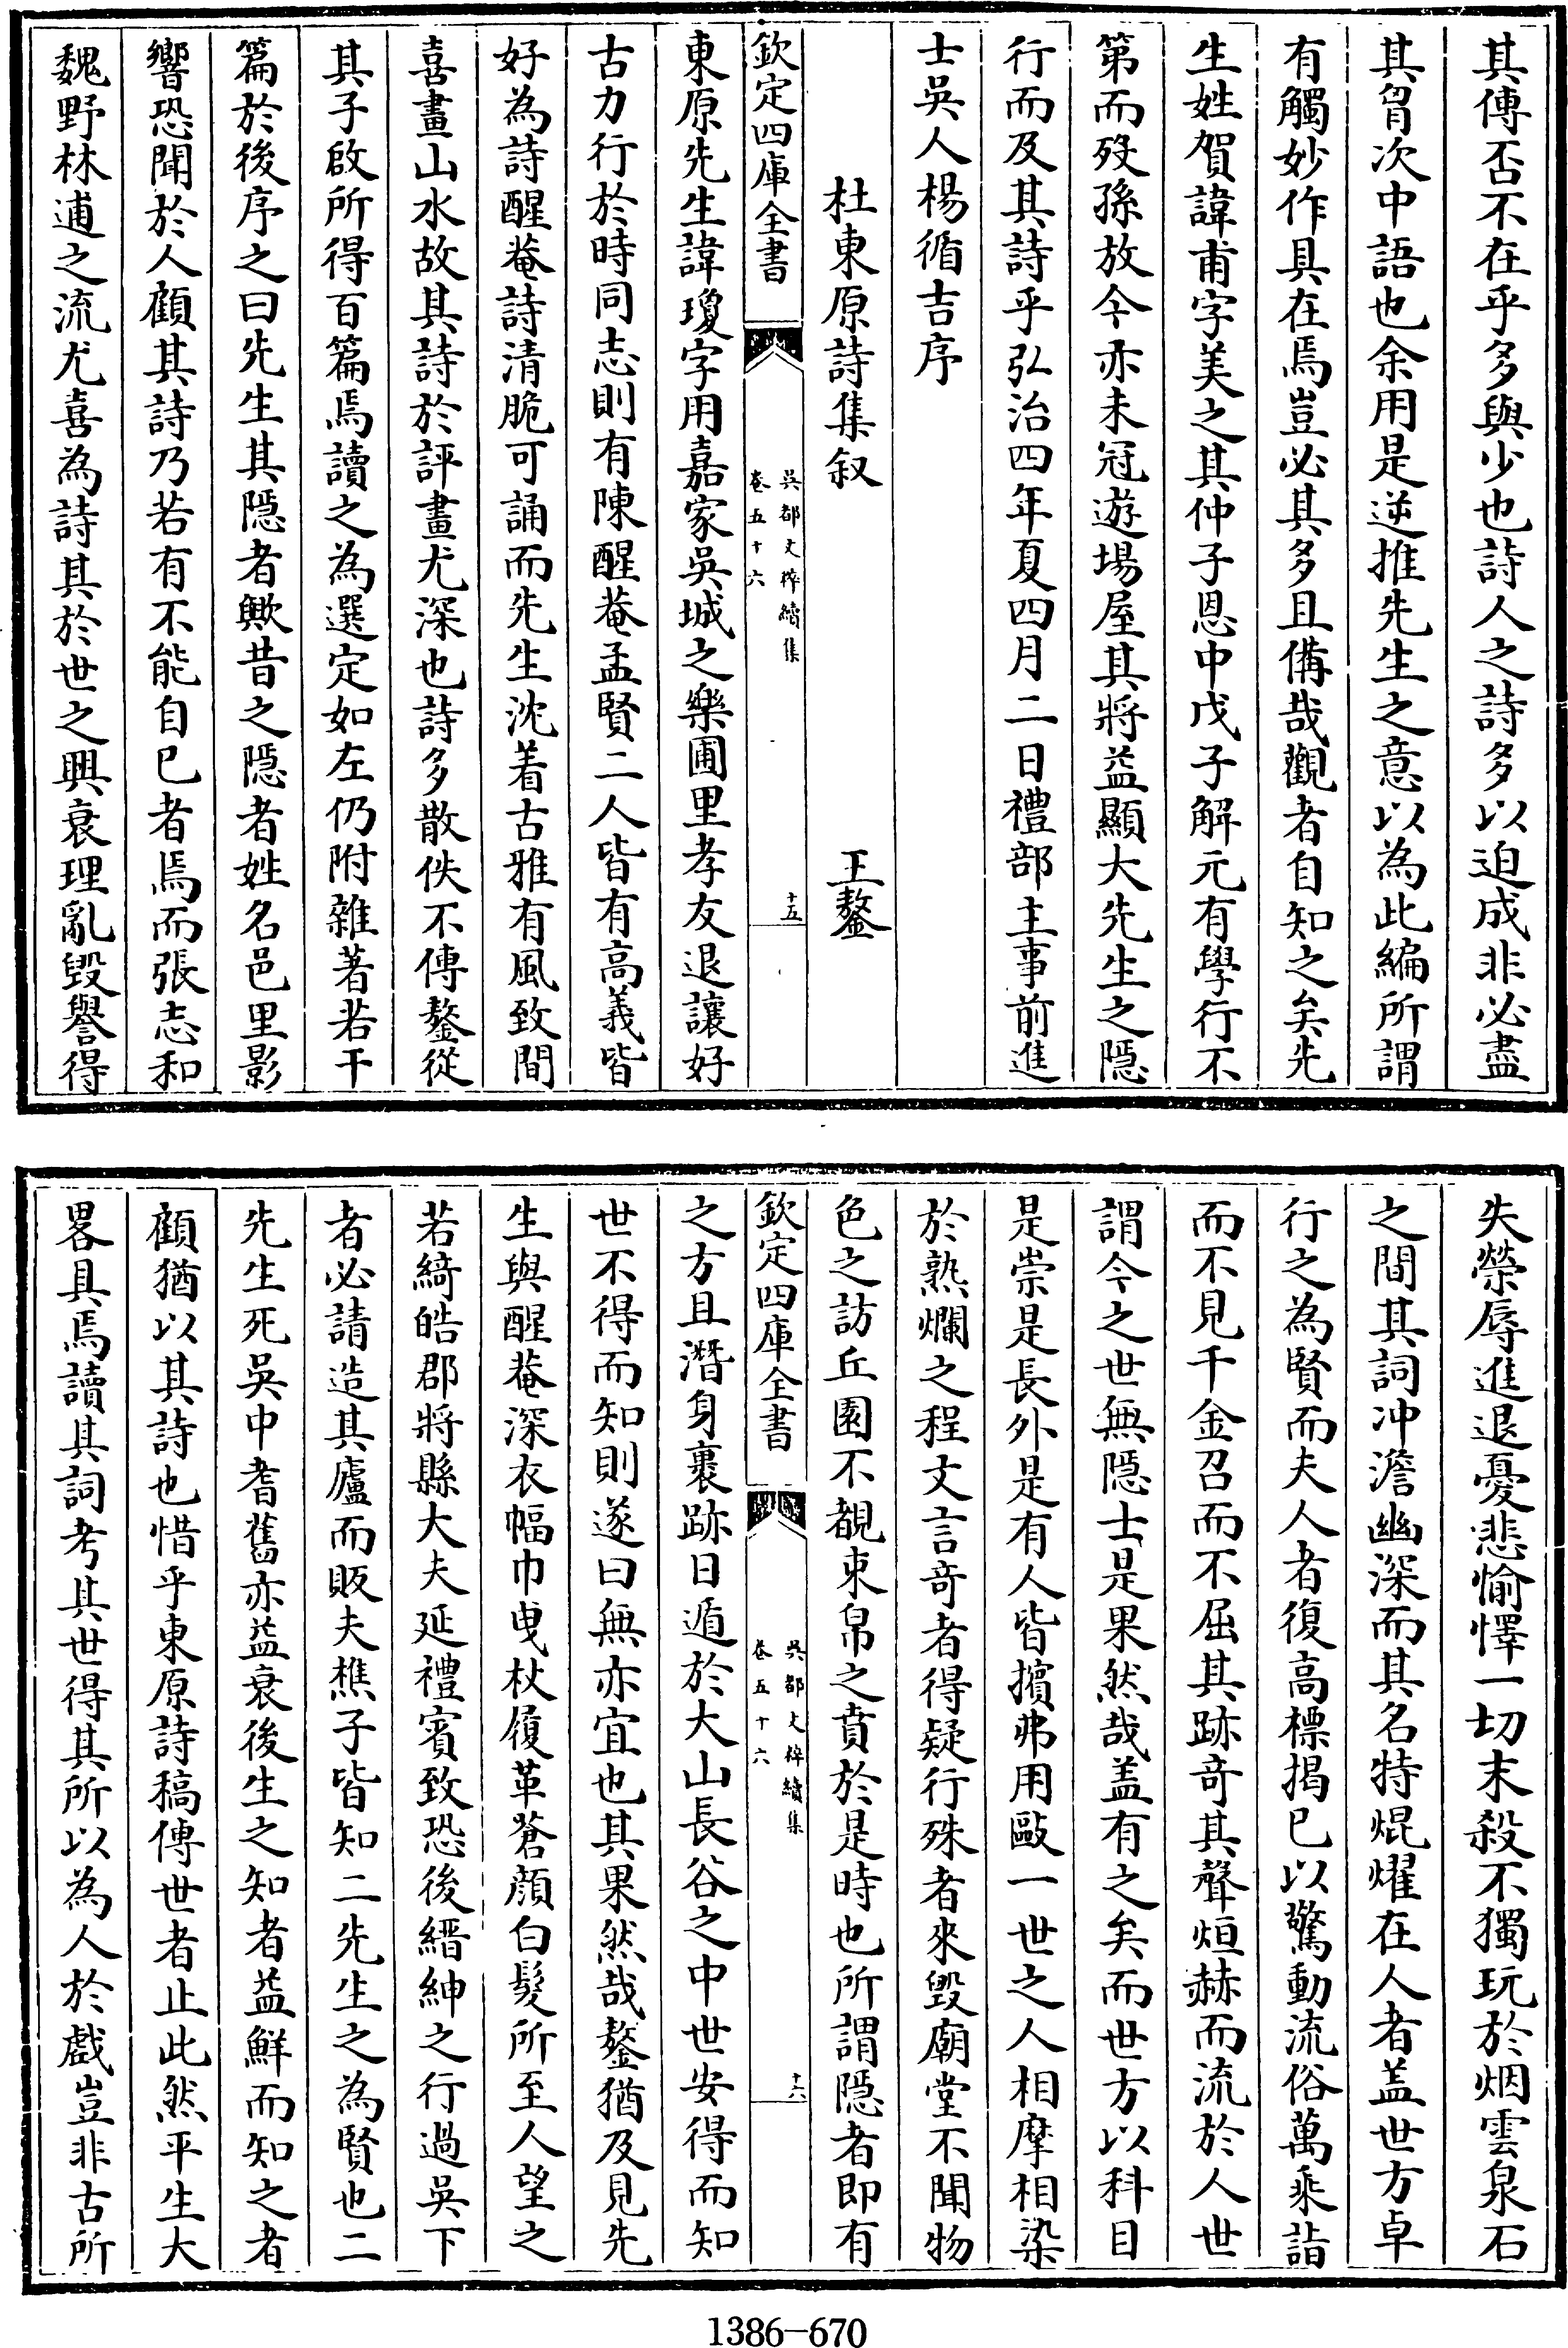 其傳否不在乎多與少也詩人之詩多以迫成非必盡
其胷次中語也余用是逆推先生之意以為此編所謂
有觸妙作具在焉豈必其多且備哉觀者自知之矣先
生姓賀諱甫字美之其仲子恩中戊子解元有學行不
第而歿孫放今亦未冠遊場屋其將益顯大先生之隱
行而及其詩乎弘治四年夏四月二日禮部主事前進
士吳人楊循吉序
杜東原詩集叙　王鏊
欽定四庫全書　吳都文粹續集　卷五十六　十五
東原先生諱瓊字用嘉家吳城之樂圃里孝友退讓好
古力行於時同志則有陳醒菴孟賢二人皆有高義皆
好為詩醒菴詩清脆可誦而先生沈着古雅有風致間
喜畫山水故其詩於評畫尤深也詩多散佚不傳鏊從
其子啟所得百篇焉讀之為選定如左仍附雜著若干
篇於後序之曰先生其隱者歟昔之隱者姓名邑里影
響恐聞於人顧其詩乃若有不能自已者焉而張志和
魏野林逋之流尤喜為詩其於世之興衰理亂毀譽得
失榮辱進退憂悲愉懌一切末殺不獨玩於烟雲泉石
之間其詞冲澹幽深而其名特焜燿在人者盖世方卓
行之為賢而夫人者復高標揭已以驚動流俗萬乘詣
而不見千金召而不屈其跡竒其聲烜赫而流於人世
謂今之世無隱士是果然哉盖有之矣而世方以科目
是崇是長外是有人皆擯弗用敺一世之人相摩相染
於熟爛之程文言竒者得疑行殊者來毀廟堂不聞物
色之訪丘園不覩束帛之賁於是時也所謂隱者即有
欽定四庫全書　吳都文粹續集　卷五十六　十六
之方且潛身裹跡日遁於大山長谷之中世安得而知
世不得而知則遂曰無亦宜也其果然哉鏊猶及見先
生與醒菴深衣幅巾曳杖履革蒼顔白髮所至人望之
若綺皓郡將縣大夫延禮賓致恐後縉紳之行過吳下
者必請造其廬而販夫樵子皆知二先生之為賢也二
先生死吳中耆舊亦益衰後生之知者益鮮而知之者
顧猶以其詩也惜乎東原詩稿傳世者止此然平生大
畧具焉讀其詞考其世得其所以為人於戲豈非古所
1386-670